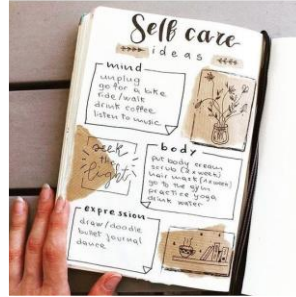 Self care
ideas
mind
unplug
go for a bike
ride/walk
drink coffee
listen to music
seek
the
light
body
put body cream
scrub (2x week)
hair mask (1x week)
go to the gym
practice yoga
drink water
expression
draw/doodle
bullet journal
dance